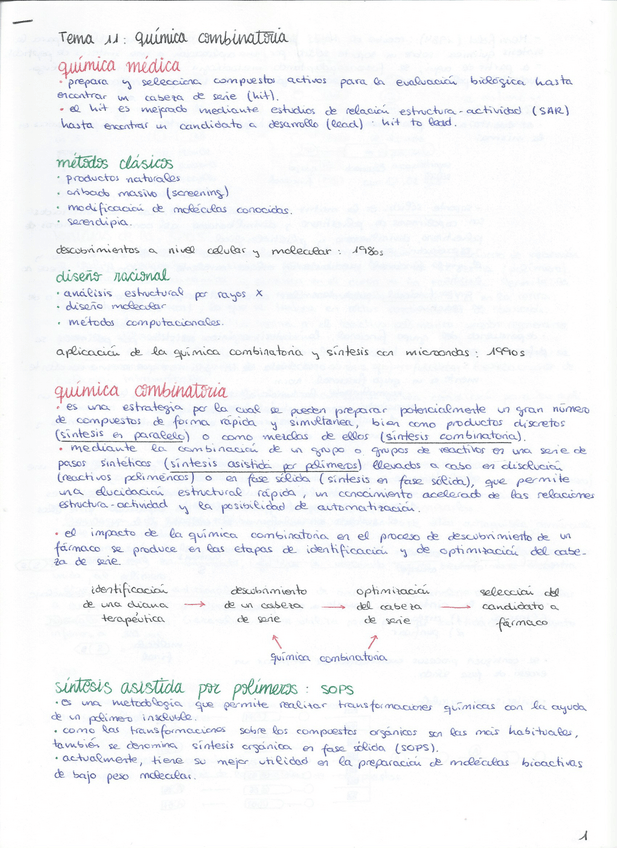 Tema 11: química combinatoria
química médica
· prepara y selecciona compuestos activos para la evaluación biológica hasta
encontrar un cabeza de serie (hit).
· el hit es mejorado mediante estudios de relación estructura-actividad (SAR)
hasta encontrar un candidato a desarrollo (lead): hit to lead.
métodos clásicos
· productos naturales
· cribado masivo (screening)
· modificación de moléculas conocidas.
· serendipia.
descubrimientos a nivel celular y molecular: 1980s
diseño racional
· análisis estructural por rayos X
· diseño molecular
· métodos computacionales.
aplicación de la química combinatoria y síntesis con microondas: 1990s
química combinatoria
· es una estrategia por la cual se pueden preparar potencialmente un gran número
de compuestos de forma rápida y simultanea, bien como productos discretos
(síntesis en paralelo) o como mezclas de ellos (síntesis combinatoria).
· mediante la combinación de un grupo o grupos de reactivos en una serie de
pasos sintéticos (síntesis asistida por polímeros) llevados a cabo en disolución
(reactivos poliméricos) o en fase sólida (síntesis en fase sólida), que permite
una elucidación estructural rápida, un conocimiento acelerado de las relaciones
estructura-actividad y la posibilidad de automatización.
· el impacto de la química combinatoria en el proceso de descubrimiento de un
fármaco se produce en las etapas de identificación y de optimización del cabe-
za de serie.
identificación de una diana terapéutica → descubrimiento de un cabeza de serie → optimización del cabeza de serie → selección del candidato a fármaco
química combinatoria
síntesis asistida por polímeros: SOPS
· es una metodología que permite realizar transformaciones químicas con la ayuda
de un polímero insoluble.
· como las transformaciones sobre los compuestos orgánicos son las más habituales,
también se denomina síntesis orgánica en fase sólida (SOPS).
· actualmente, tiene su mejor utilidad en la preparación de moléculas bioactivas
de bajo peso molecular.
1